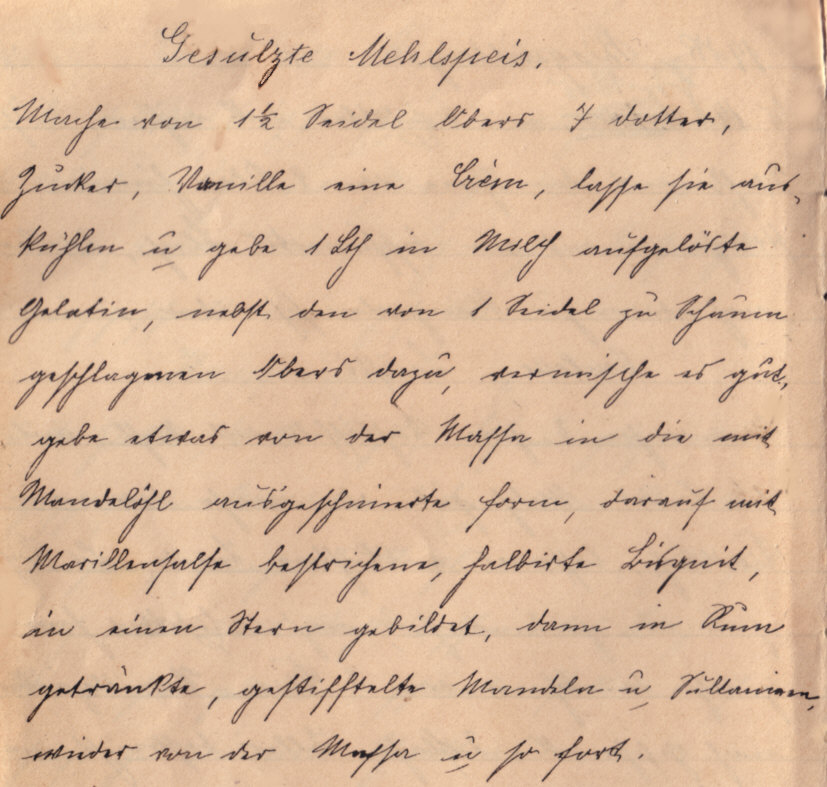 Gesulzte Mehlspeis.
Mache von 1½ Seidel Obers 7 dotter,
Zucker, Vanille eine Crèm, lasse sie aus-
kühlen u gebe 1 Lth in Milch aufgelöste
Gelatin, nebst den von 1 Seidel zu Schaum
geschlagenen Obers dazu, vermische es gut,
gebe etwas von der Massa in die mit
Mandelöhl ausgeschmierte form, darauf mit
Marillensalse bestrichene, halbirte Bisquit,
in einen Stern gebildet, dann in Rum
getränkte, gestifftelte Mandeln u Sultaninen,
wieder von der Massa u so fort.